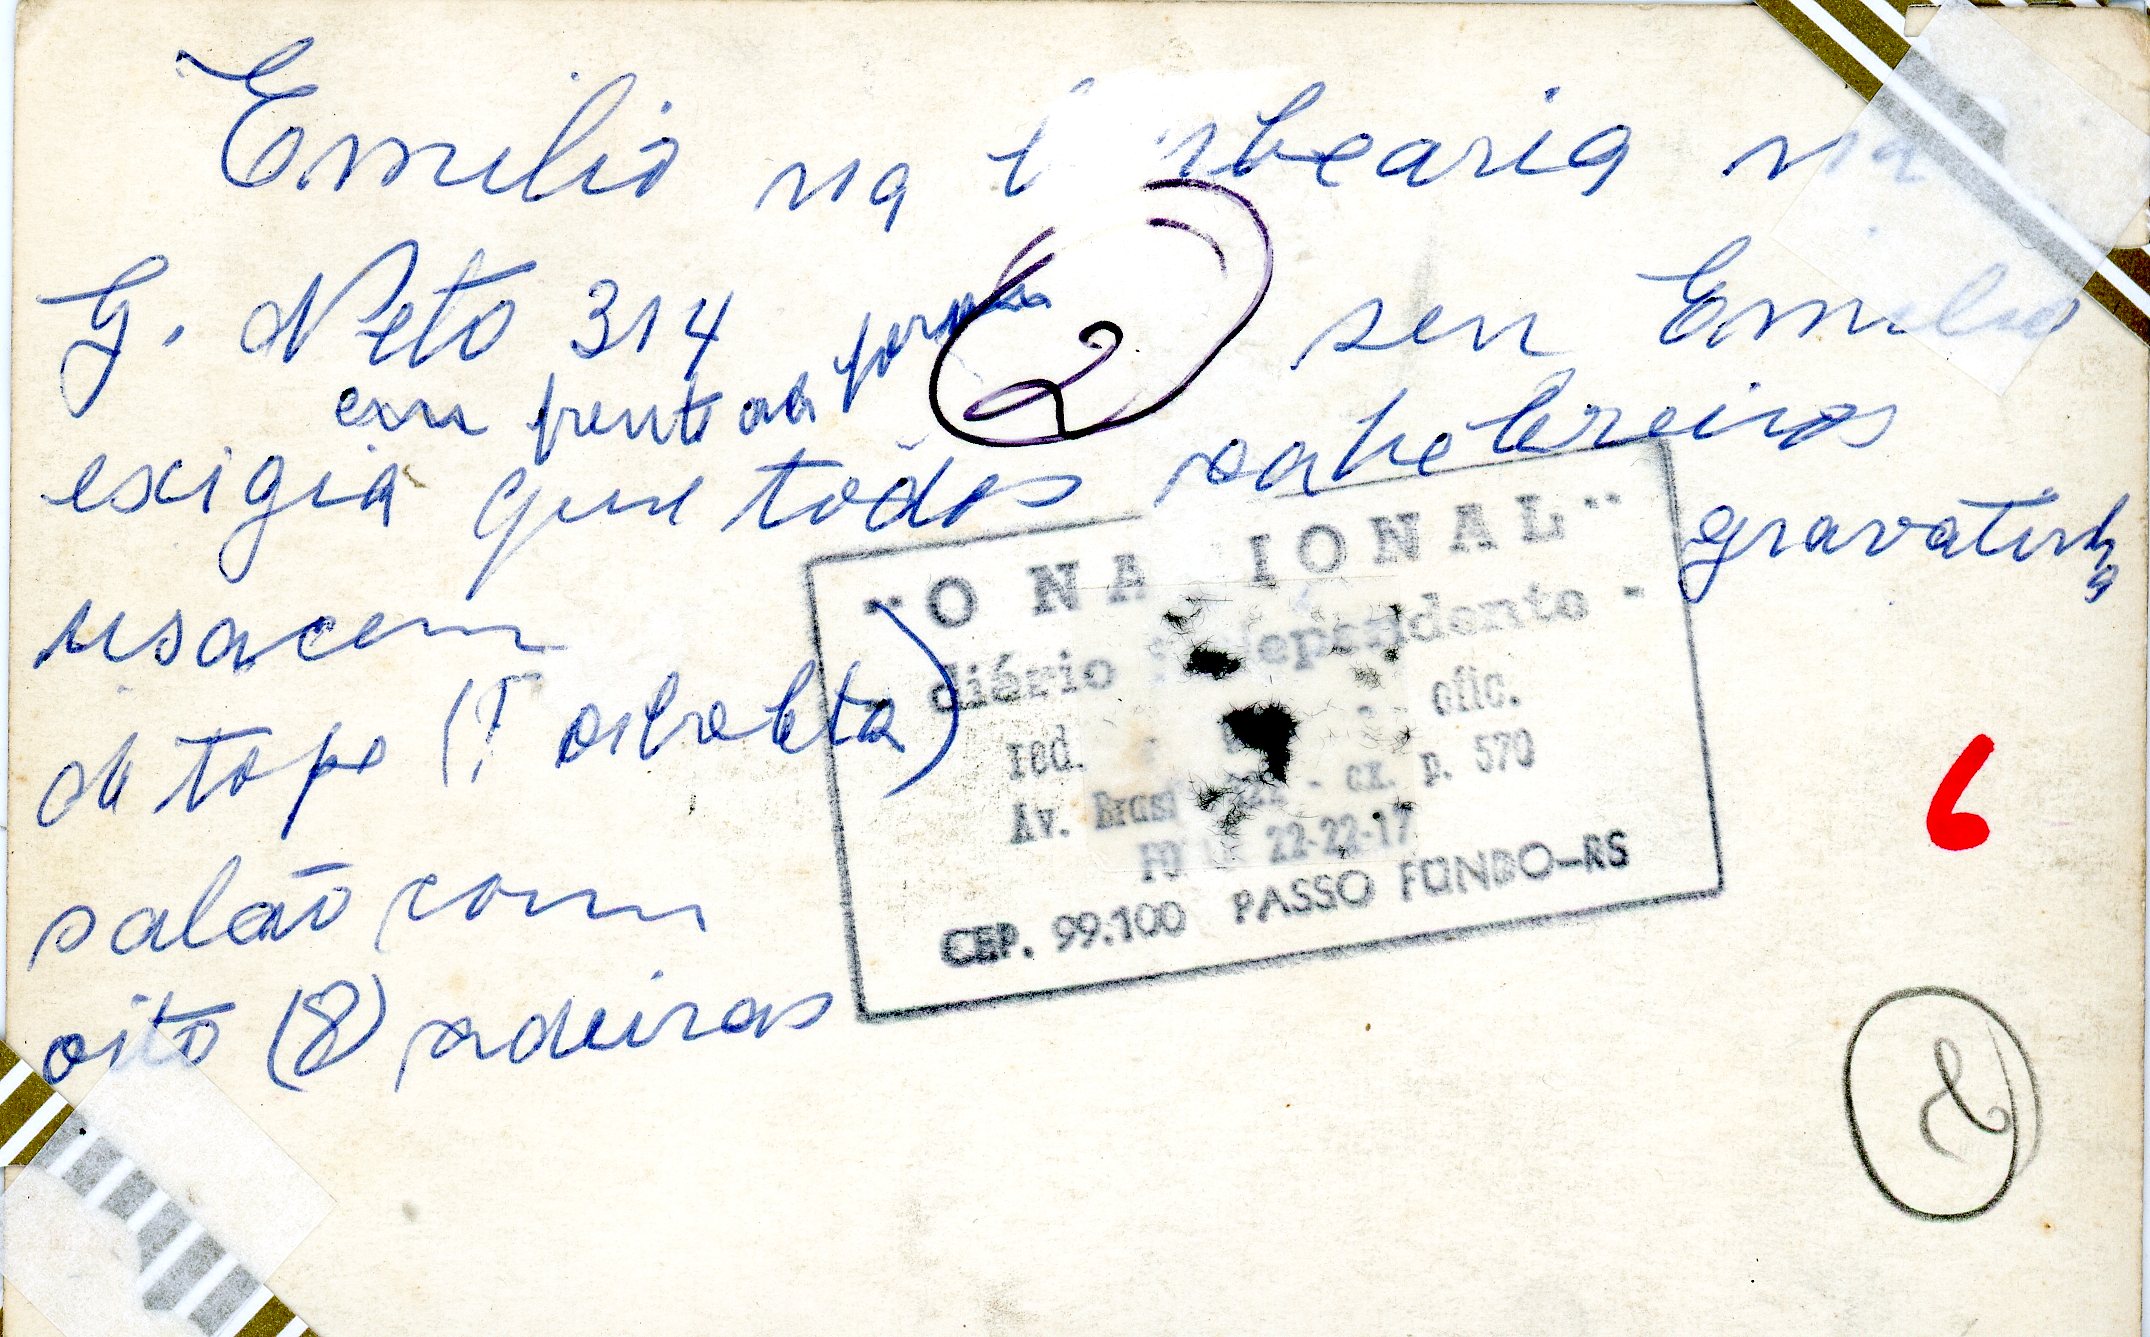 Emilio na b rbearia na
G. Neto 314
seu Emilio
em frente a
exigia que todos cabelereiros
usacem
gravatinha
de tope ( )
salão com
oito (8) cadeiras
2
"O NA IONAL"
diário ndependente -
red. ofic.
Av. Brasi - cx. p. 570
22-22-17
CEP. 99.100 PASSO FUNDO-RS
6
2